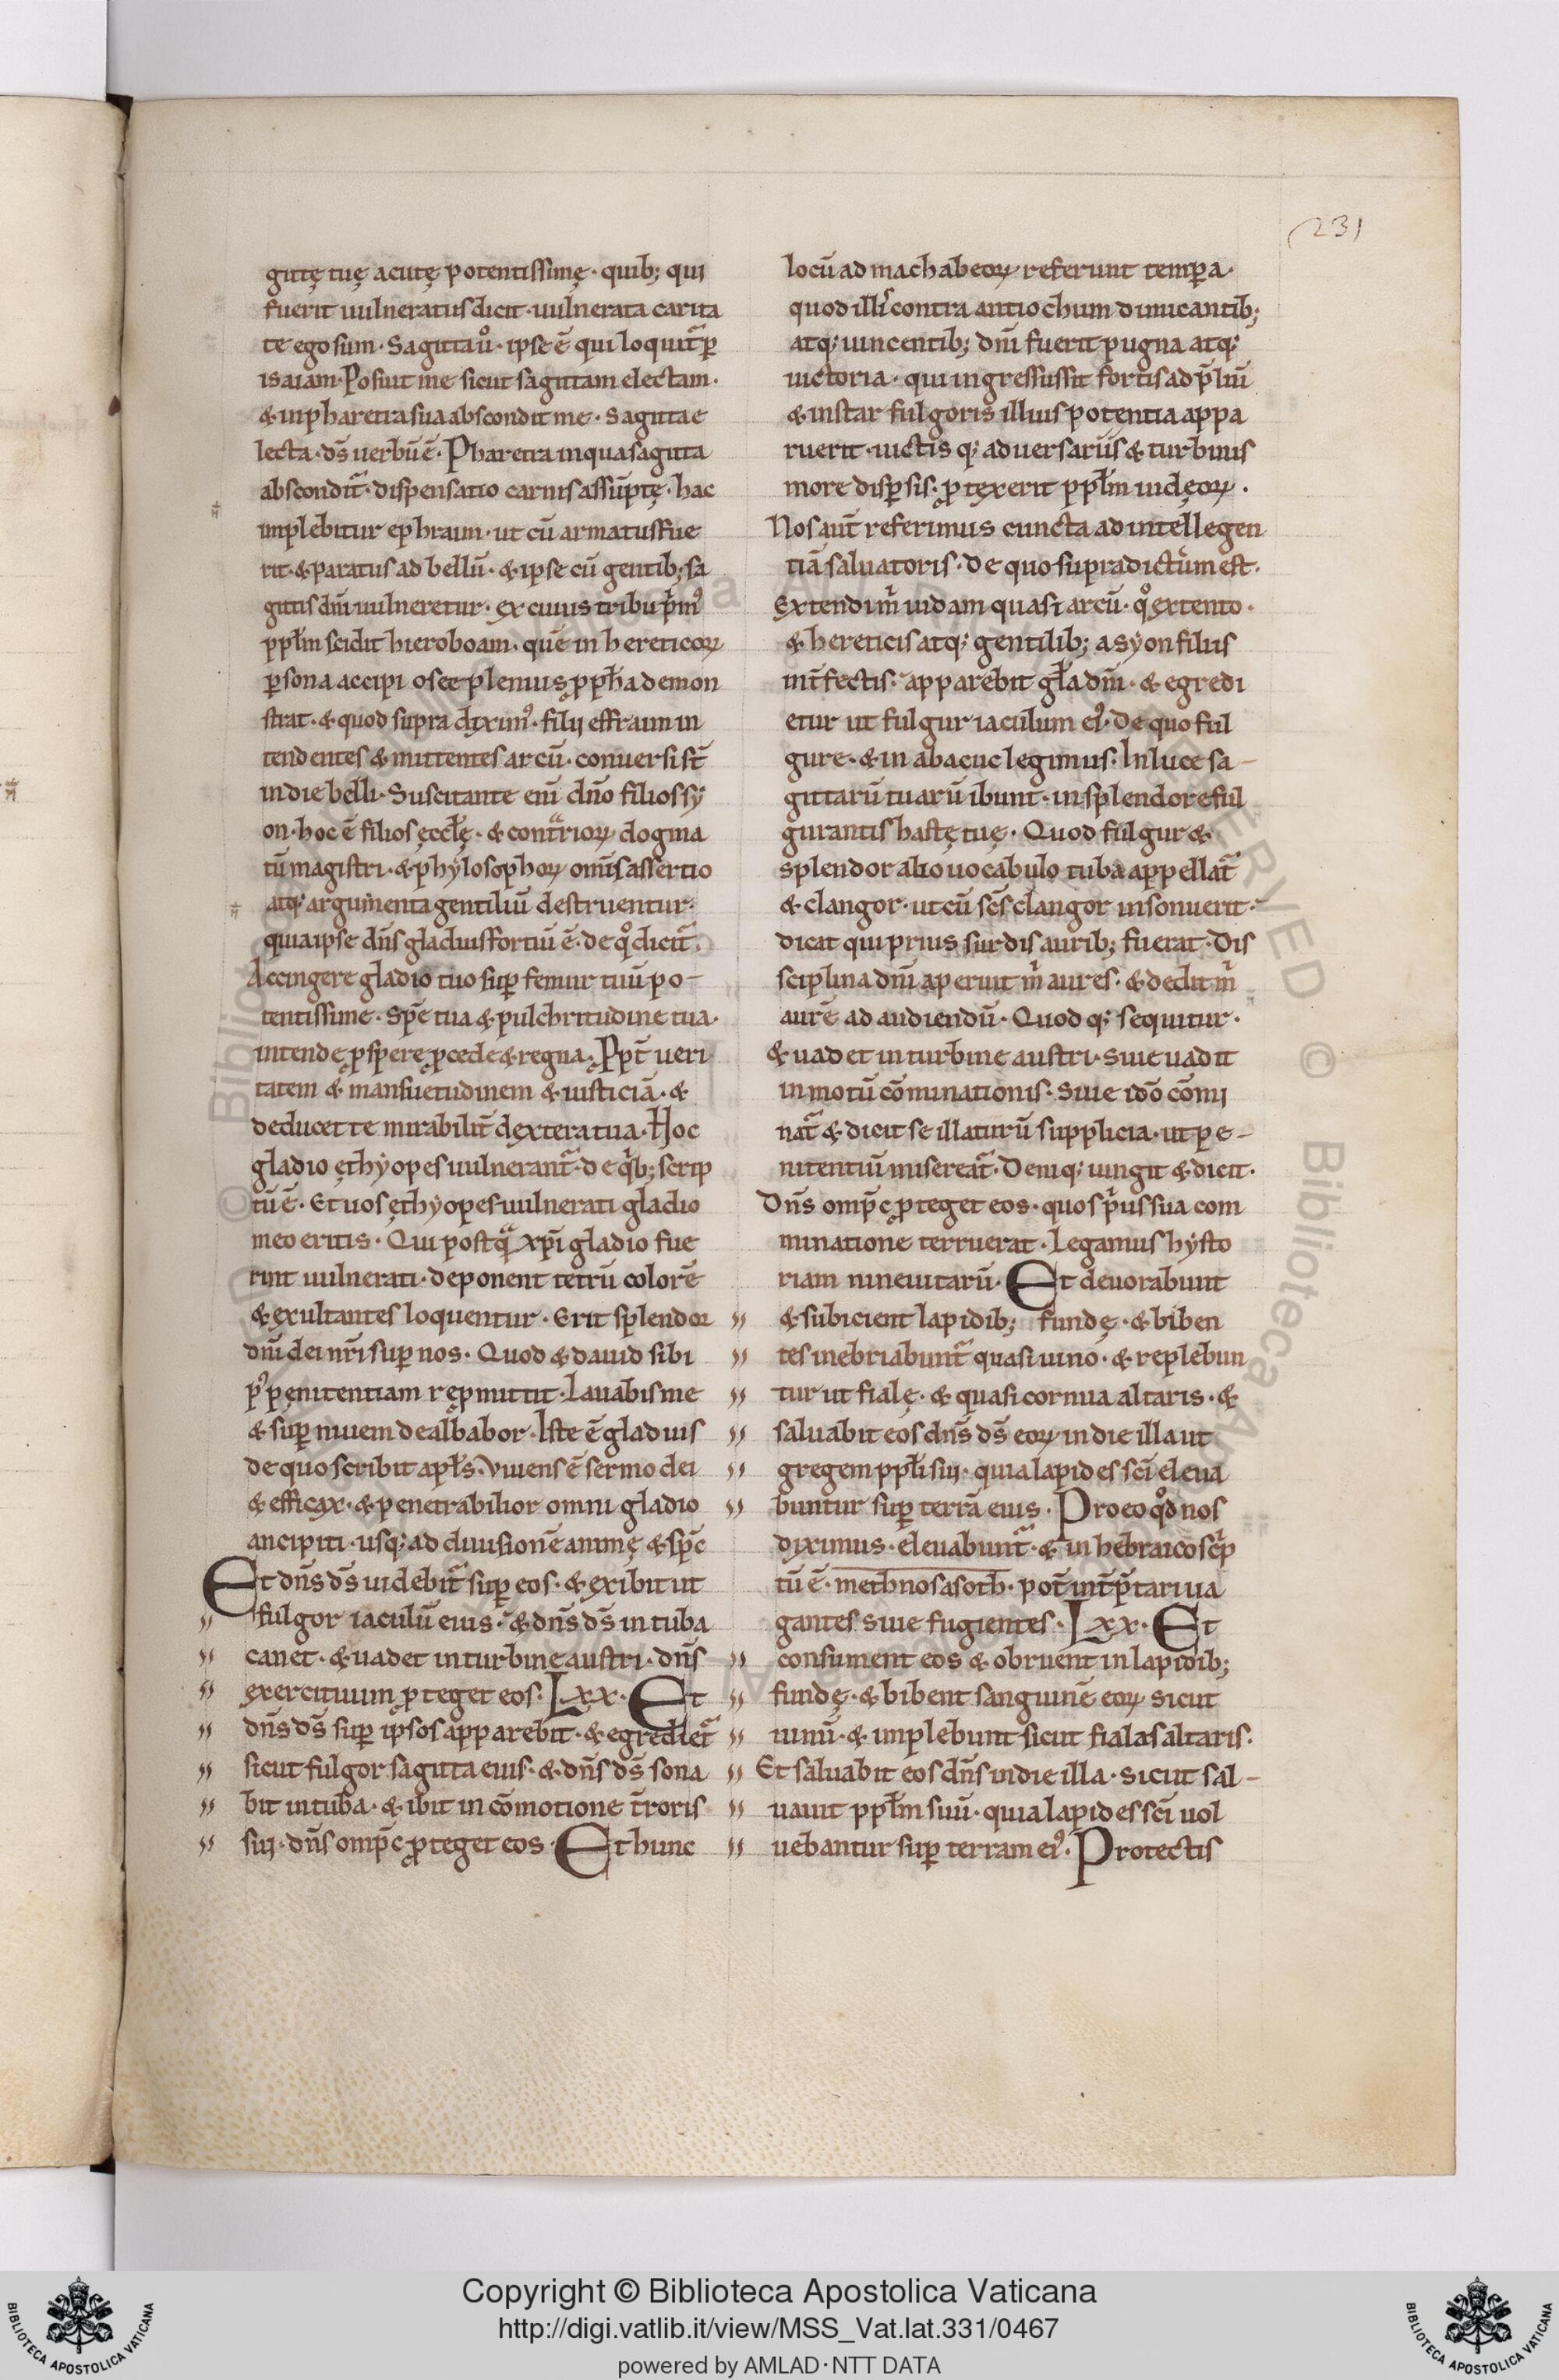 231
gittę tuę acutę potentissimę· quib; qui
fuerit uulneratus dicit· uulnerata carita
te ego sum· Sagitta ů· ipse ē qui loquit᷑ ꝑ
isaiam· Posuit me sicut sagittam electam·
& in pharetra sua abscondit me· Sagitta e
lecta· ds̄ uerbū ē· Pharetra in qua sagitta
abscondit᷑· dispensatio carnis assūptę· hac
implebitur ephraim· ut cū armatus fue
rit· & paratus ad bellū· & ipse cū gentib; sa
gittis dn̄i uulneretur· ex cuius tribu p̄mꝰ
ppłm scidit hieroboam· quē in hereticoꝝ
ꝑsona accipi osee plenius ꝓpħa demon
strat· & quod supra diximꝰ· filij effraim in
tendentes & mittentes arcū· conuersi st̄
in die belli· Suscitante eni᷑ dn̄o filios sy
on· hoc ē filios ęccłę· & contrarioꝝ dogma
tū magistri· & phylosophoꝝ omīs assertio
atq; argumenta gentiliū destruentur·
quia ipse dn̄s gladius fortiū ē· de qͦ dicit᷑·
Accingere gladio tuo suꝑ femur tuū po-
tentissime· Spē tua & pulchritudine tua·
intende ꝓspere ꝓcede & regna· Ppt̄ ueri
tatem & mansuetudinem & iusticiā· &
deducet te mirabilit̄ dextera tua· Hoc
gladio ęthyopes uulnerant᷑· de qͥb; scrip
tū ē· Et uos ęthyopes uulnerati gladio
meo eritis· Qui postqᷓ xp̄i gladio fue
rint uulnerati· deponent tetrū colorē
& exultantes loquentur· Erit splendor
dn̄i dei nr̄i suꝑ nos· Quod & dauid sibi
pꝰ penitentiam reꝓmittit· Lauabis me
& suꝑ niuem dealbabor· Iste ē gladius
de quo scribit apłs· Viuens ē sermo dei
& efficax· & penetrabilior omni gladio
ancipiti· usq; ad diuisionē animę & spc̄
Et dn̄s ds̄ uidebit᷑ suꝑ eos· & exibit ut
fulgor iaculū eius· & dn̄s ds̄ in tuba
canet· & uadet in turbine austri· dn̄s
exercituum ꝓteget eos· Lxx· Et
dn̄s ds̄ suꝑ ipsos apparebit· & egrediet᷑
sicut fulgor sagitta eius· & dn̄s ds̄ sona
bit in tuba· & ibit in cōmotione t̄roris
sui· dn̄s omp̄c ꝓteget eos· Et hunc
locū ad machabeoꝝ referunt temꝑa·
quod illis contra antiochum dimicantib;
atq; uincentib; dn̄i fuerit pugna atq;
uictoria· qui ingressus sit fortis ad p̄liū
& instar fulgoris illius potentia appa
ruerit· uictis q; aduersariis & turbinis
more disꝑsis· ꝓtexerit ppłm iudęoꝝ·
Nos aut̄ referimus cuncta ad intellegen
tiā saluatoris· de quo supra dictum est·
Extendi m̄ iudam quasi arcū· qͦ extento·
& hereticis atq; gentilib; a syon filiis
int̄fectis· apparebit gła dn̄i· & egredi
etur ut fulgur iaculum eiꝰ· De quo ful
gure· & in abacuc legimus· In luce sa-
gittarū tuarū ibunt· in splendore ful
gurantis hastę tuę· Quod fulgur &
splendor alio uocabulo tuba appellat᷑
& clangor· ut cū scs̄ clangor insonuerit·
dicat qui prius surdis aurib; fuerat· Dis
sciplina dn̄i aperuit m̄ aures· & dedit m̄
aurē ad audiendū· Quod q; sequitur·
& uadet in turbine austri· siue uadit
in motū cōminationis· Siue idō cōmi
nat᷑ & dicit se illaturū supplicia· ut pe-
nitentiū misereat᷑· Deniq; iungit & dicit·
Dn̄s omp̄c ꝓteget eos· quos pͥus sua com
minatione terruerat· Legamus hysto
riam niniuitarū· Et deuorabunt
& subicient lapidib; fundę· & biben
tes inebriabunt᷑ quasi uino· & replebun
tur ut fialę· & quasi cornua altaris· &
saluabit eos dn̄s ds̄ eoꝝ in die illa ut
gregem ppłi sui· quia lapides sci᷑ eleua
buntur suꝑ terrā eius· Pro eo qͦd nos
diximus· eleuabunt᷑· & in hebraico scͥp
tū ē· methnosasoth· pot̄ int̄p̄tari ua
gantes siue fugientes· Lxx· Et
consument eos & obruent in lapidib;
fundę· & bibent sanguinē eoꝝ sicut
uinū· & implebunt sicut fialas altaris·
Et saluabit eos dn̄s in die illa· sicut sal-
uauit ppłm suū· quia lapides sci᷑ uol
uebantur suꝑ terram eiꝰ· Protectis
Copyright © Biblioteca Apostolica Vaticana
http://digi.vatlib.it/view/MSS_Vat.lat.331/0467
powered by AMLAD·NTT DATA
BIBLIOTECA APOSTOLICA VATICANA
BIBLIOTECA APOSTOLICA VATICANA